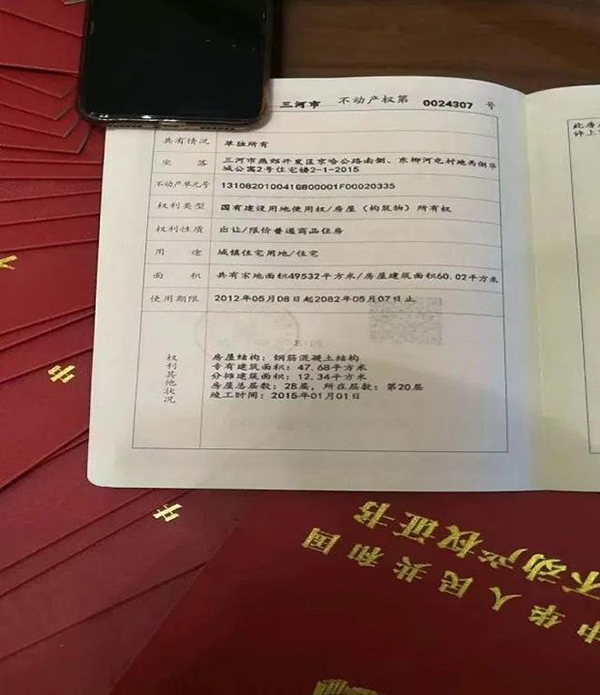 三河市 不动产权第 0024307 号
共有情况 单独所有
坐落 三河市燕郊开发区京哈公路南侧、东柳河屯村地西侧华
城公寓2号住宅楼2-1-2015
不动产单元号 131082010041GB00001F00020335
权利类型 国有建设用地使用权/房屋（构筑物）所有权
权利性质 出让/限价普通商品住房
用途 城镇住宅用地/住宅
面积 共有宗地面积49532平方米/房屋建筑面积60.02平方米
使用期限 2012年05月08日起2082年05月07日止
权利其他状况
房屋结构：钢筋混凝土结构
专有建筑面积：47.68平方米
分摊建筑面积：12.34平方米
房屋总层数：28层，所在层数：第20层
竣工时间：2015年01月01日
此房
评上
书
中华人民共和国
不动产权证书